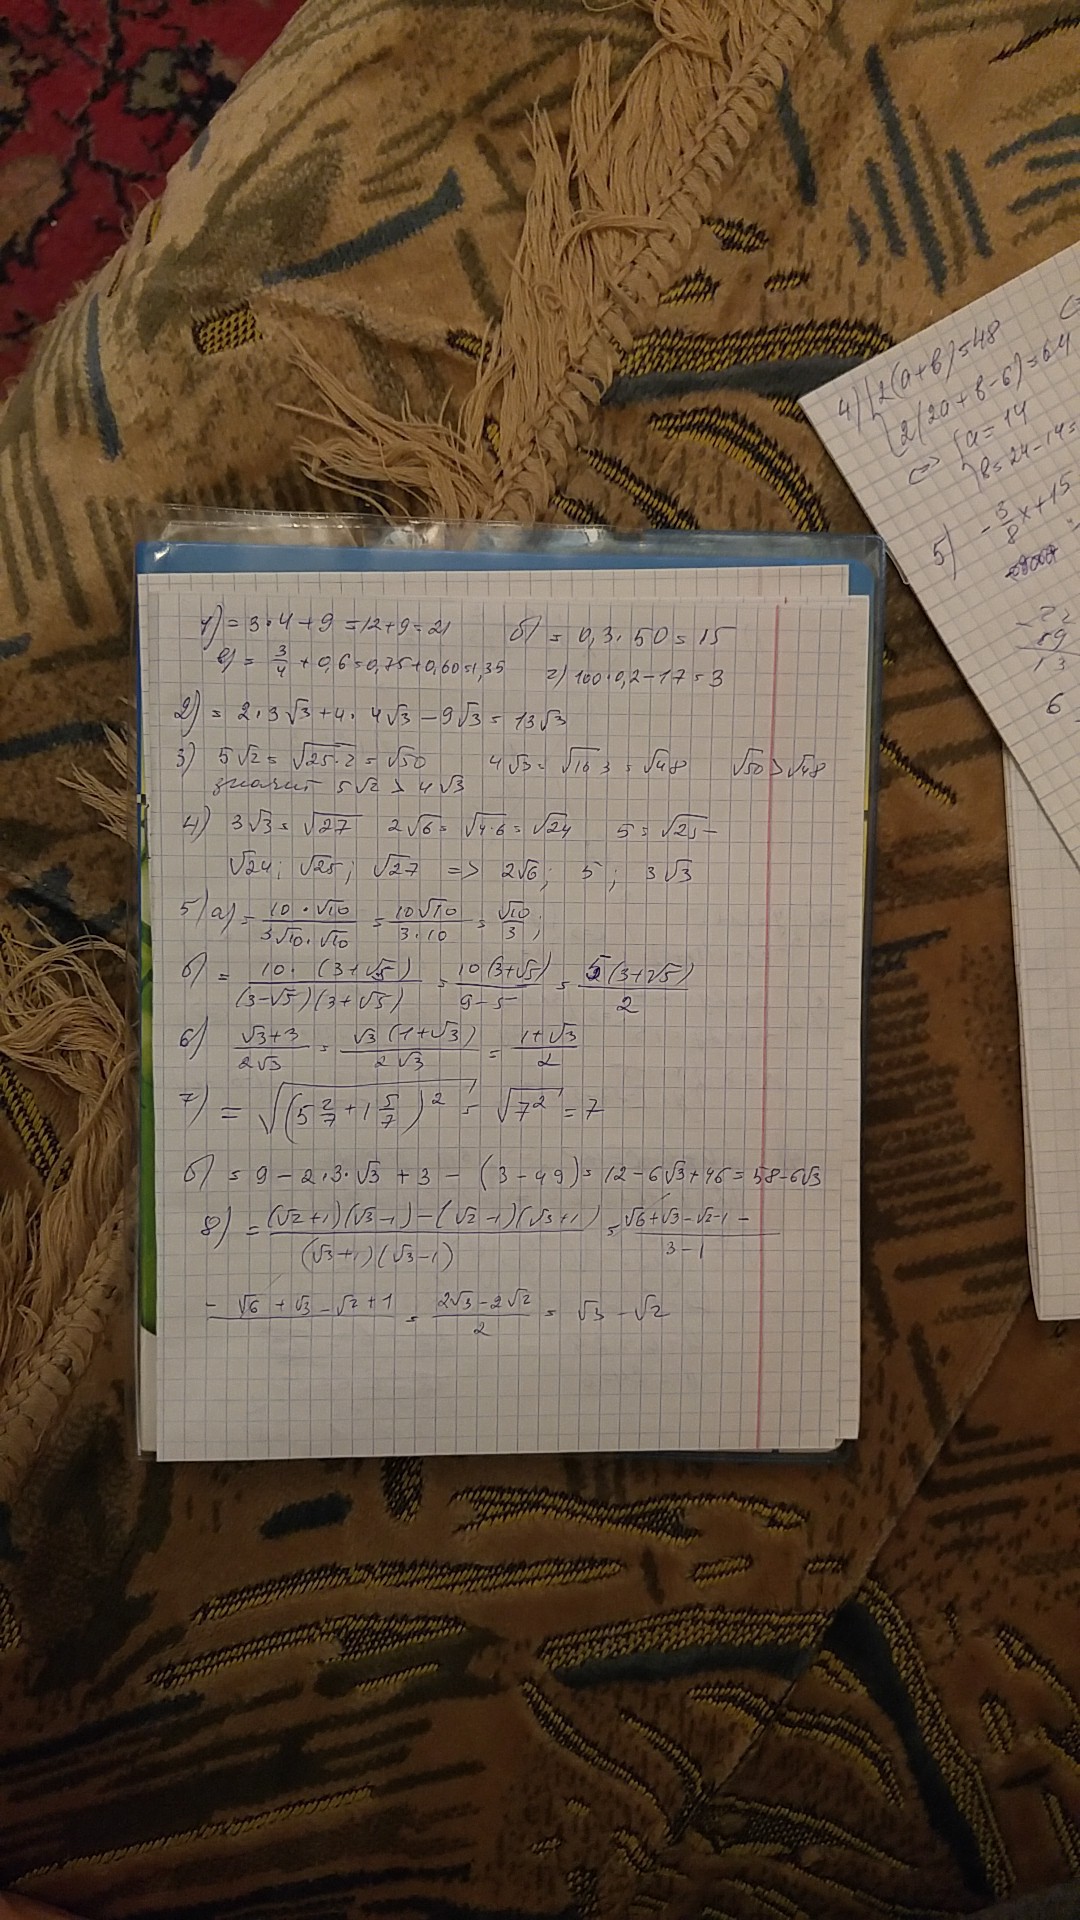 1) = 3·4+9 = 12+9 = 21 б) = 0,3·50 = 15
в) = 3/4 + 0,6 = 0,75+0,60 = 1,35 г) 100·0,2-17 = 3
2) = 2·3√3 + 4·4√3 - 9√3 = 13√3
3) 5√2 = √25·2 = √50 4√3 = √16 3 = √48 √50 > √48
значит 5√2 > 4√3
4) 3√3 = √27 2√6 = √4·6 = √24 5 = √25
√24; √25; √27 => 2√6; 5; 3√3
5) а) = 10·√10/3√10·√10 = 10√10/3·10 = √10/3;
б) = 10·(3+√5)/(3-√5)(3+√5) = 10(3+√5)/9-5 = 5(3+√5)/2
6) √3+3/2√3 = √3(1+√3)/2√3 = 1+√3/2
7) = √(5 2/7 + 1 5/7)² = √7² = 7
б) = 9 - 2·3·√3 + 3 - (3-49) = 12-6√3+46 = 58-6√3
8) = (√2+1)(√3-1)-(√2-1)(√3+1)/(√3+1)(√3-1) = √6+√3-√2-1-/3-1
- √6+√3-√2+1 = 2√3-2√2/2 = √3-√2
4) 2(a+b)=48
2(2a+b-6)=64
<=> a=14
b=24-14=
5) -3/8x+15
22
89
13
6